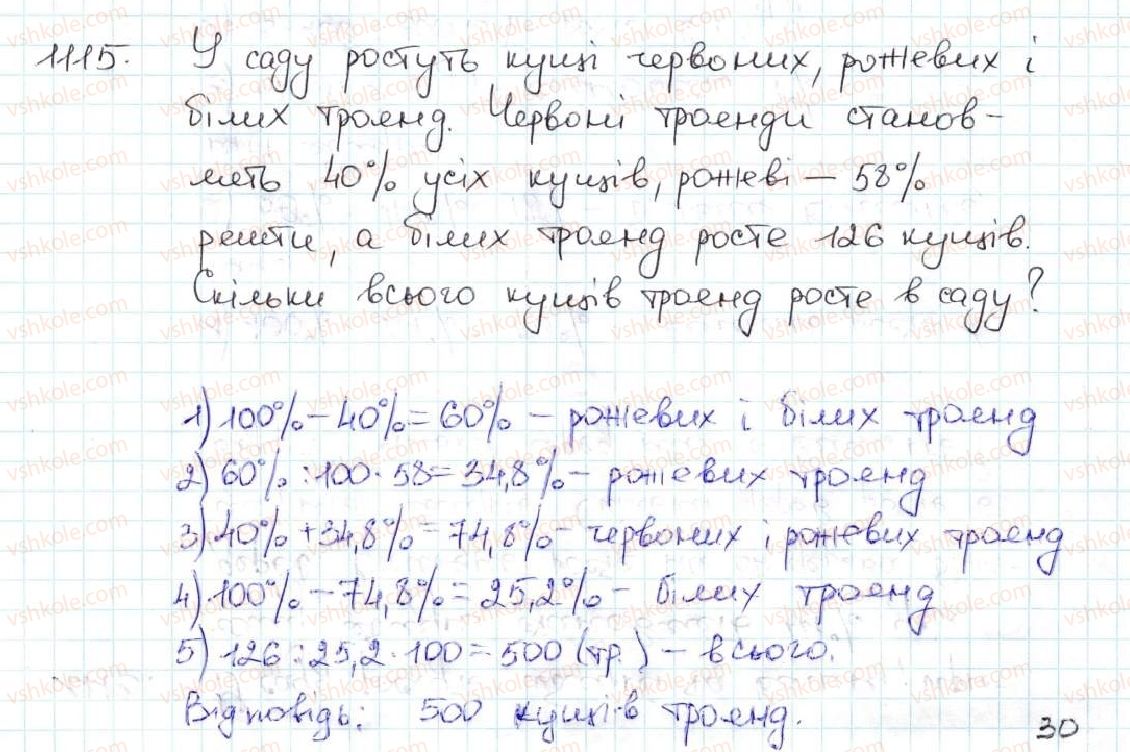 1115. У саду ростуть кущі червоних, рожевих і
білих троянд. Червоні троянди станов-
лять 40% усіх кущів, рожеві — 58%
решти, а білих троянд росте 126 кущів.
Скільки всього кущів троянд росте в саду?
1) 100% - 40% = 60% - рожевих і білих троянд
2) 60% : 100 · 58 = 34,8% - рожевих троянд
3) 40% + 34,8% = 74,8% - червоних і рожевих троянд
4) 100% - 74,8% = 25,2% - білих троянд
5) 126 : 25,2 · 100 = 500 (тр.) - всього.
Відповідь: 500 кущів троянд.
30